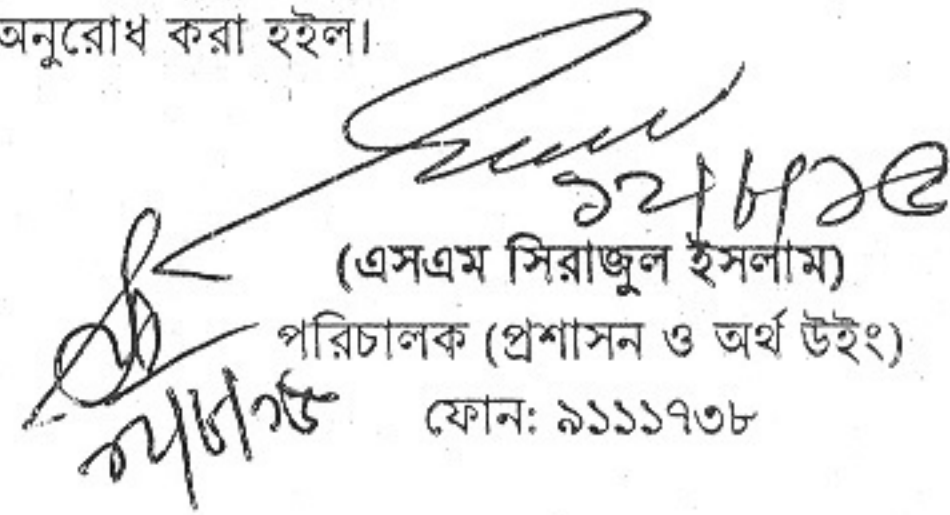 অনুরোধ করা হইল।
১২|৮|১৫
(এসএম সিরাজুল ইসলাম)
পরিচালক (প্রশাসন ও অর্থ উইং)
ফোন: ৯১১১৭৩৮